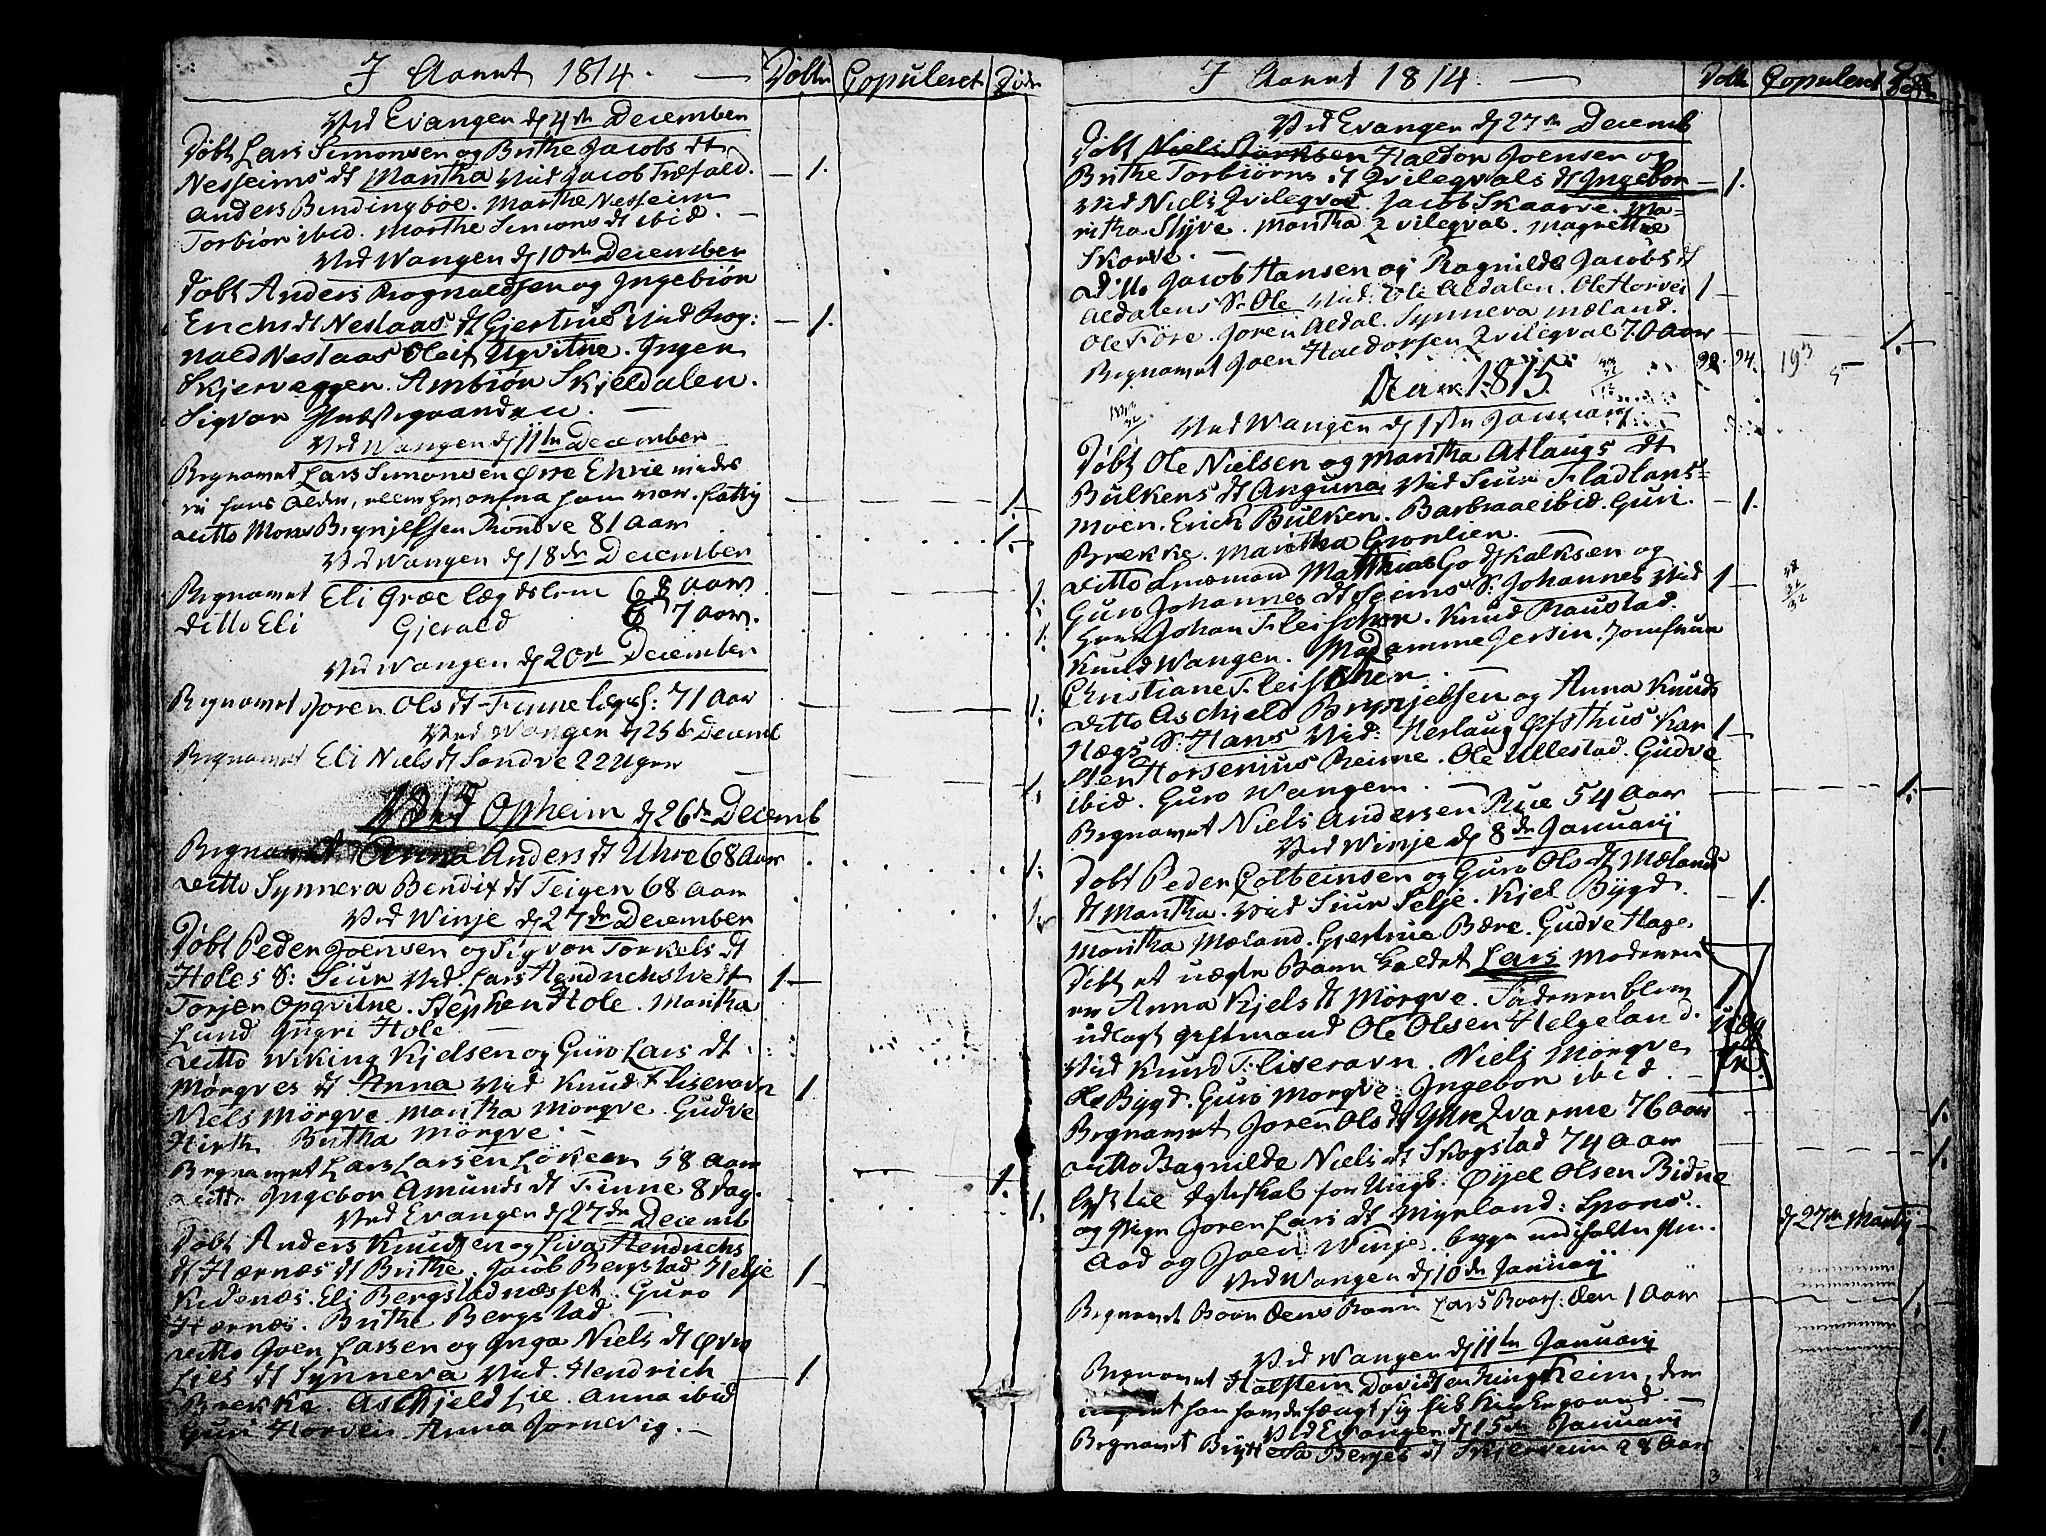 I Aaret 1814. — Døbte Copuleret Døde
Ved Evangen d 4de December
Døbt Lars Simonsen og Brithe Jacobs dt
Nesheims dt Maritha Vid Jacob Træfald. — 1.
Anders Bindingboe. Marthe Nesheim
Torbiør ibid. Marthe Simons dt ibid. —
Ved Wangen d 10de December
Døbt Anders Rognaldsen og Ingebiør
Erichs dt Neslaas dt Giertrud Vid Rog: — 1.
nald Neslaas Oleif Ugvitne. Inger
Skjerveggen. Ambiør Skjeldalen.
Sigvor Præstegaarden. —
Ved Wangen d 11te December
Begravet Lars Simonsen Øvre Ehrie vides
ei hans Alder, han var fattig 1.
ditto Mons Brynjelfsen Rondve 81 Aar 1.
Ved Wangen d 18de December
Begravet Eli Græe lægdslem 68 Aar 1.
Ditto Eli Gjerald 67 Aar. 1.
Ved Wangen d 20de December
Begravet Joren Ols dt Finne lægsl: 71 Aar 1.
Ved Wangen d 25de Decemb
Begravet Eli Niels dt Sondve 22 Uger — 1.
Ved Opheim d 26de Decemb
Begravet Anna Anders dt Uhre 68 Aar 1.
ditto Synneva Bendix dt Teigen 68 Aar 1.
Ved Winje d 27de December
Døbt Peder Joensen og Sigvor Torkels dt
Holes S: Siur Vid. Lars Hendrichs Wedt 1 —
Torjer Opqvitne. Stephen Hole. Maritha
Lund Gugri Hole. —
ditto Wiking Kjelsen og Guro Lars dt
Mörgves dt Anna Vid Knud Fliseravn 1.
Niels Mörgve. Maritha Mörgve. Gudve
Hirth Britha Mörgve. —
Begravet Lars Larsen Løkeen 58 Aar 1.
ditto Ingebor Amunds dt Finne 8 Dag. 1.
Ved Evangen d 27de Decemb
Døbt Anders Knudsen og Liva Hendrichs
dt Hærnæs dt Brithe. Jacob Bergstad Helje 1
Kidenæs. Eli Bergstadnæsset. Guro
Hærnæs. Brithe Bergstad —
ditto Joen Larsen og Inga Niels dt Øvre
Lies dt Synneva Vid. Hendrich — 1.
Brekke. Aschjeld Lie. Anna ibid
Guri Horvei. Anna Jornevig. —
I Aaret 1814. — Døbte Copuleret Døde
Ved Evangen d 27de Decemb
Døbt Haldor Joensen og
Brithe Torbiørns dt Qvileqvals dt Ingebor — 1.
Vid Niels Qvileqval. Jacob Skaarve. Ma-
ritha Styve. Maritha Qvileqval. Magrethe
Skorve. —
ditto Jacob Hansen og Ragnilde Jacobs dt
Aldalens S: Ole Vid: Ole Aldalen. Ole Horvei 1 —
Ole Føre. Joren Aldal. Synneva Mæland.
Begravet Joen Haldorsen Qvileqval 70 Aar — 1. —
Aar 1815
Ved Wangen d 1ste Januarij
Døbt Ole Nielsen og Maritha Atlaugs dt
Bulkens dt Anguna Vid Siur Fladlans- — 1.
moen. Erich Bulken. Barbraae ibid. Guri
Brekke. Maritha Grønlien.
ditto Lensmand Matthias Godtskalksen og
Guro Johannes dt Seims S: Johannes Vid 1 —
Herr Johan Fleischer. Knud Raustad.
Knud Wangen. Madamme Jersin. Jomfrue
Christiane Fleischer. —
ditto Aschield Brynjelfsen og Anna Knuds
Hægs S: Hans Vid: Herlaug Øfsthus Kar 1 —
sten Horsenius Reime. Ole Ullestad. Gudve
ibid. Guro Wangen. —
Begravet Niels Andersen Rue 54 Aar 1.
Ved Winje d 8de Januarij
Døbt Peder Colbeinsen og Guro Ols dt Mælands
dt Maritha. Vid Siur Selje. Kiel Bygd. — 1.
Maritha Mæland. Gjertrue Bære. Gudve Hage.
Døbt et uægte Barn kaldet Lars Moderen
er Anna Kjels dt Mörgve. Faderen blev
udlagt giftmand Ole Olsen Helgeland.
Vid Knud Fliseravn. Niels Mörgve
Ole Bygd. Guro Mörgve. Ingebor ibid. —
Begravet Joren Ols dt Ytre Qvarme 76 Aar 1.
ditto Ragnilde Niels dt Skogstad 74 Aar 1.
lyst til Ægteskab for Ungk. Øyel Olsen Bidne
og Pige Joren Lars dt Myrland: Spons: d 27de Martij
Aad og Joen Winje. begge
Ved Wangen d 10de Januarij
Begravet Lars 1 Aar 1.
Ved Wangen d 11te Januarij
Begravet Halstein Davidsen Ringheim, den
Kirkegaard. — 1.
Ved Evangen d 15de Januarij
Begravet Brytteva Berges dt Skjerveim 28 Aar 1.